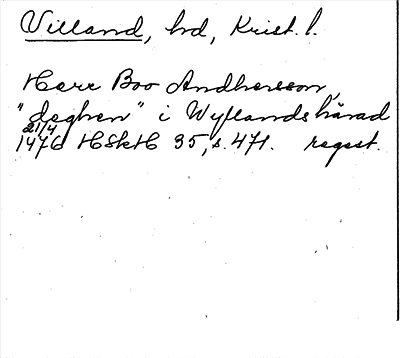 Villand, hd, Krist. l.
Herr Boo Andhersson,
"deghen" i Wyflandshärad
21/4
1476 HSkH 35, s. 471. regest.